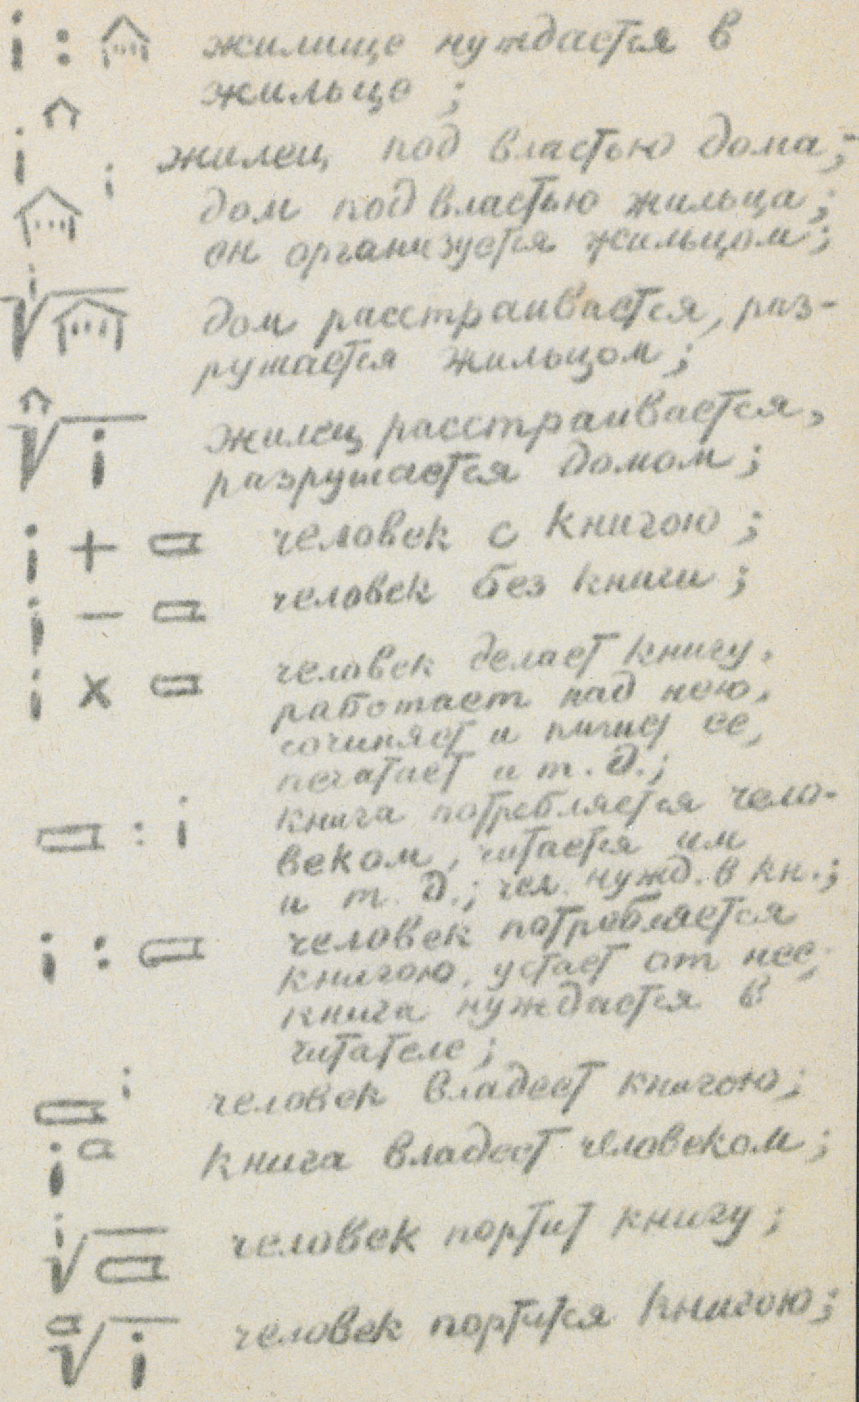 i : жилище нуждается в
жильце ;
i жилец под властью дома;
i дом под властью жильца;
он организуется жильцом;
i √ дом расстраивается, раз-
рушается жильцом;
√i жилец расстраивается,
разрушается домом;
i + человек с книгою ;
i − человек без книги ;
i x человек делает книгу,
работает над нею,
сочиняет и пишет ее,
печатает и т. д.;
: i книга потребляется чело-
веком, читается им
и т. д.; чел. нужд. в кн.;
i : человек потребляется
книгою, устает от нее;
книга нуждается в
читателе;
i человек владеет книгою;
i книга владеет человеком;
i √ человек портит книгу;
√i человек портится книгою;